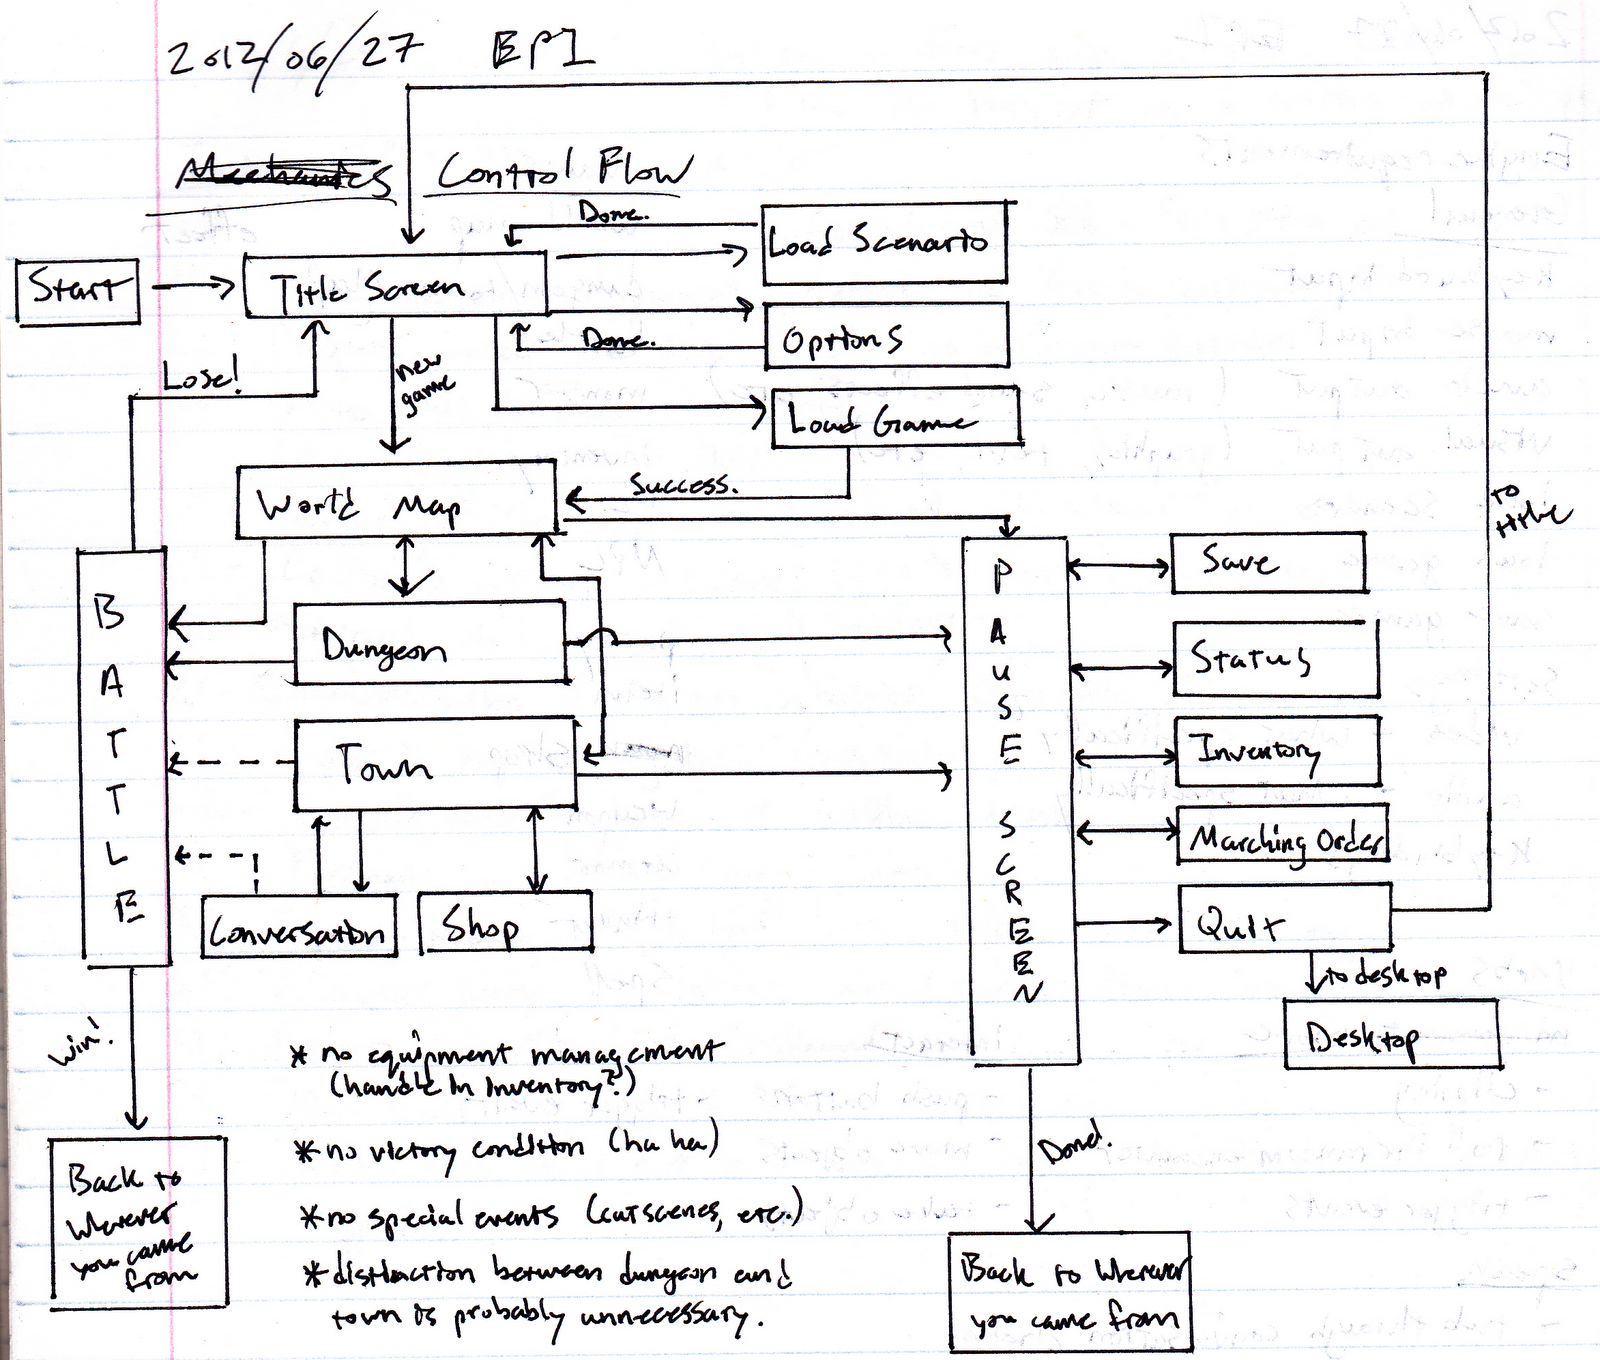 2012/06/27 EP1
Control Flow
Done.
Load Scenario
Start
Title Screen
Options
Done.
Lose!
new
game
Load Game
World Map
Success.
to
title
BATTLE
PAUSE SCREEN
Save
Dungeon
Status
Town
Inventory
Marching Order
Conversation
Shop
Quit
to desktop
Desktop
Win!
* no equipment management
(handle in Inventory?)
* no victory condition (ha ha)
Done!
* no special events (cutscenes, etc.)
* distinction between dungeon and
town is probably unnecessary.
Back to
Wherever
you came
from
Back to Wherever
you came from